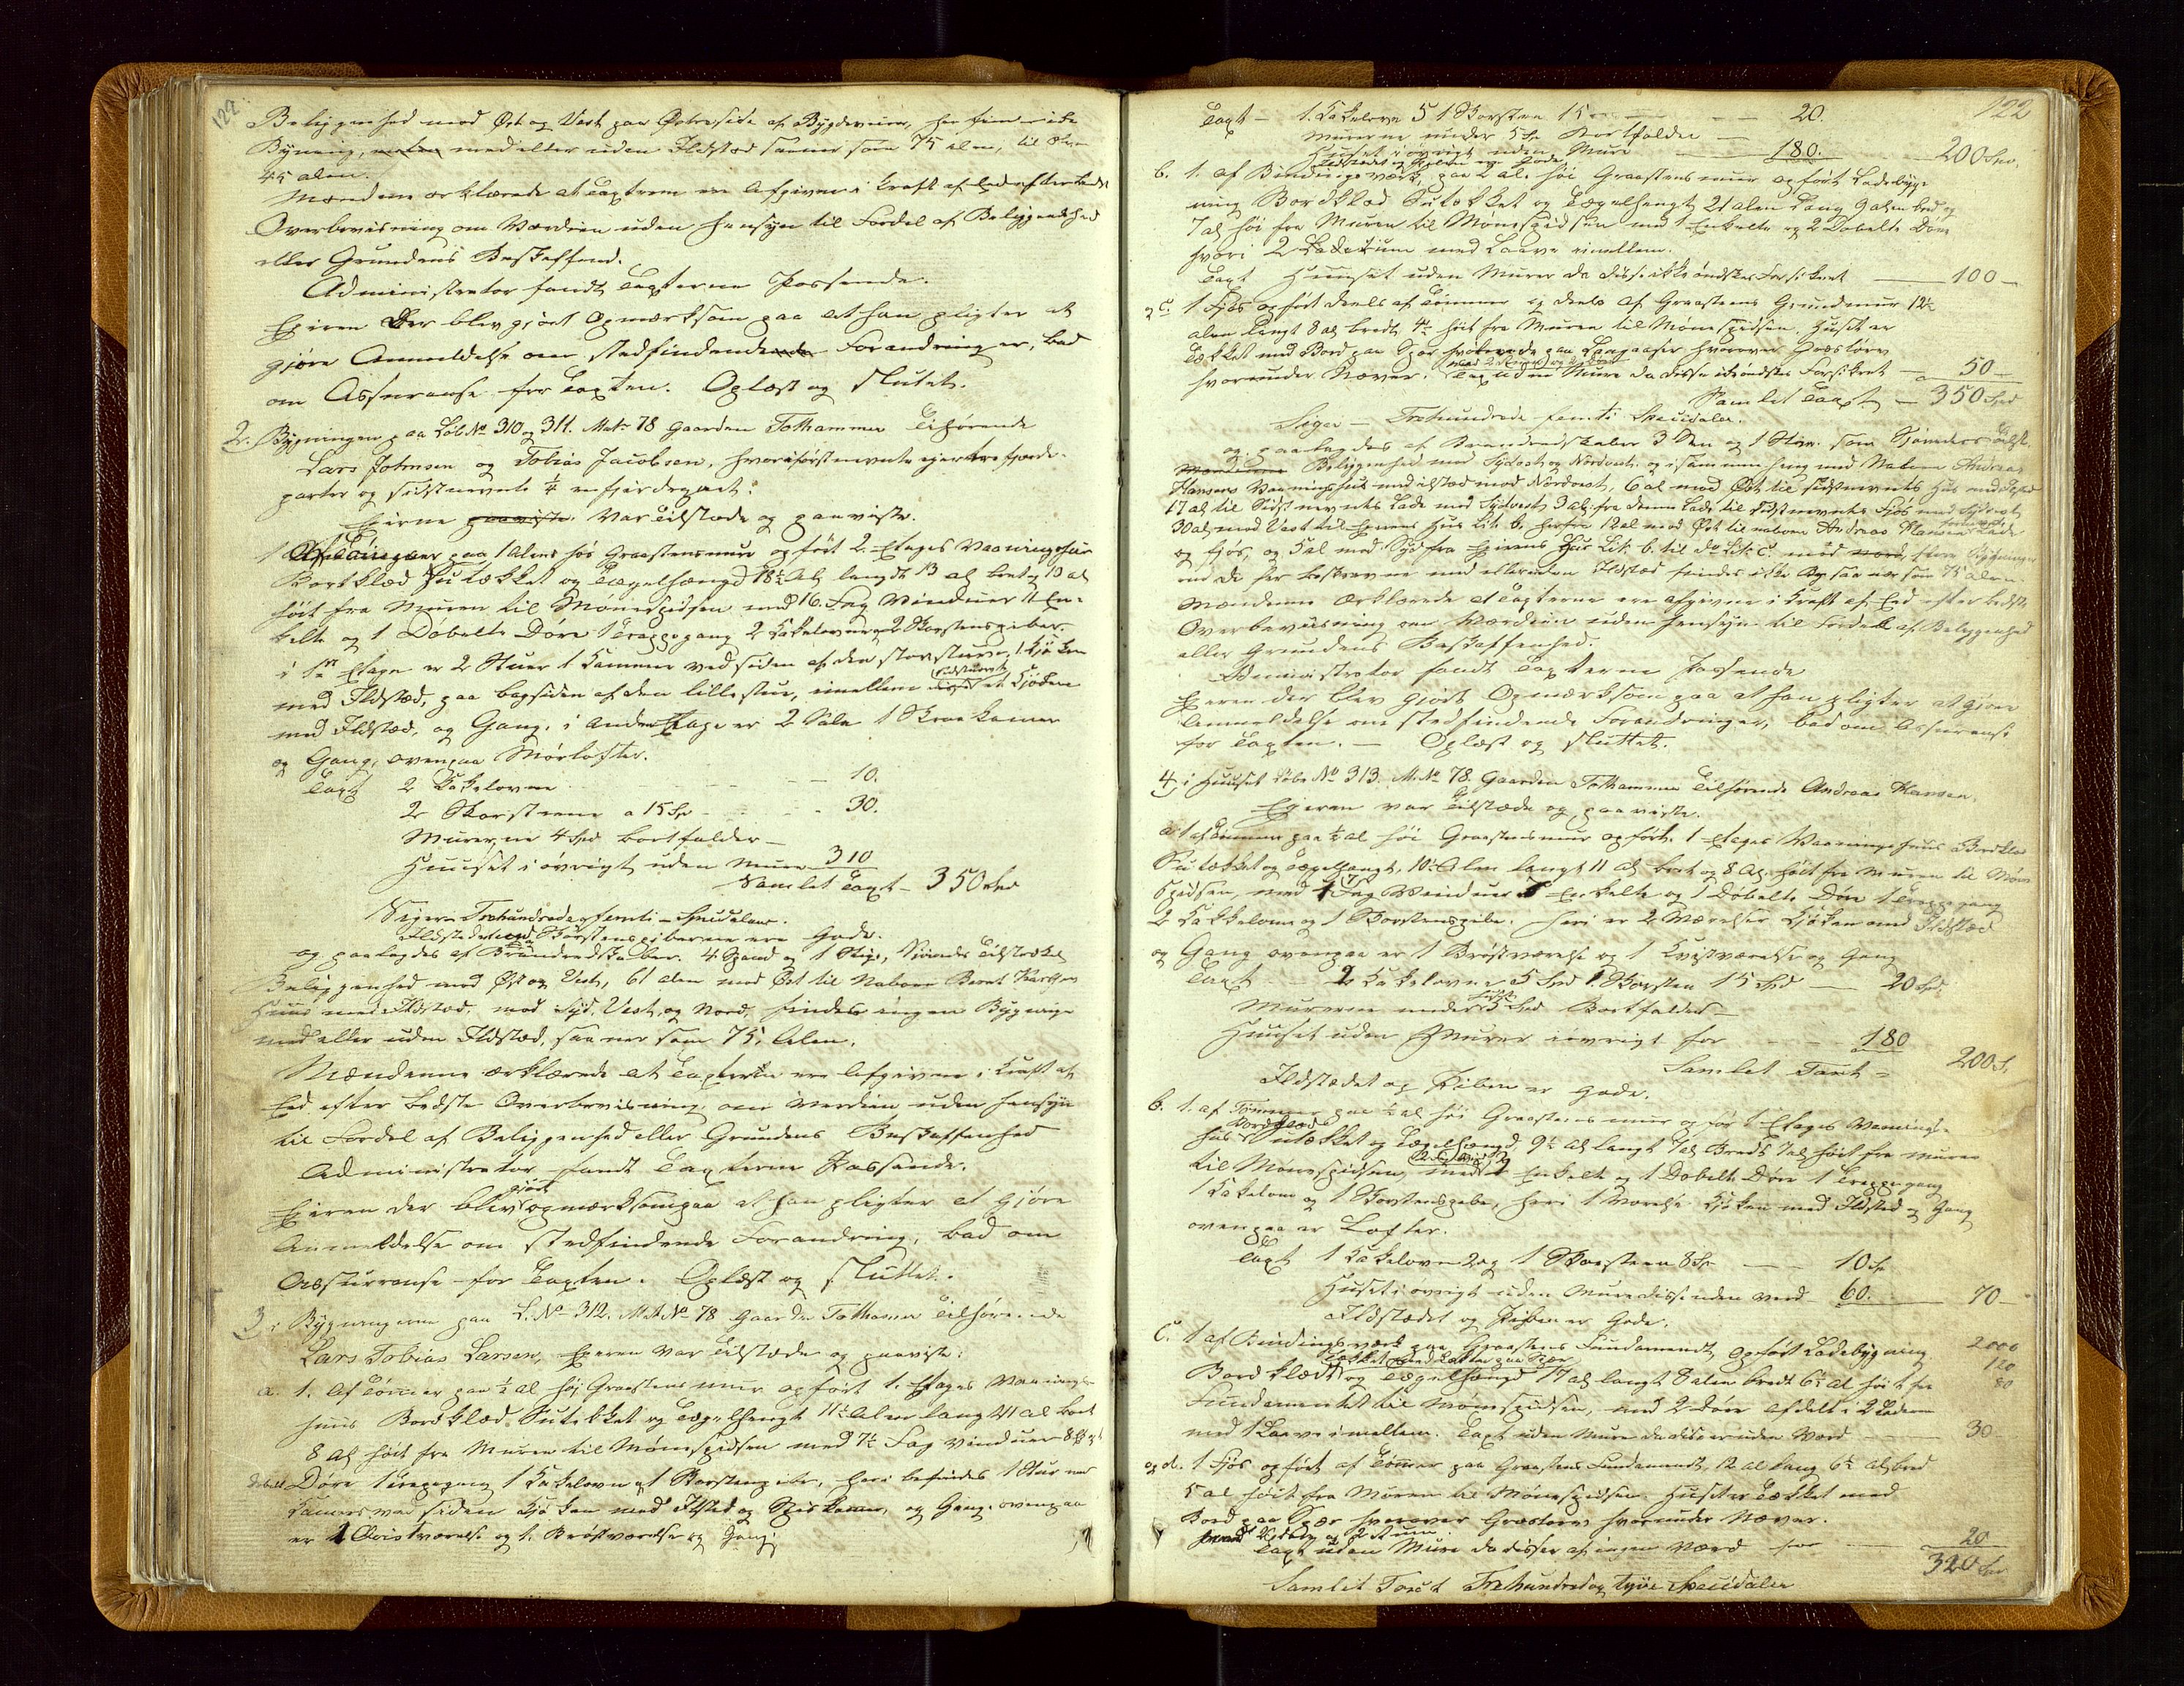 122.
Beliggenhed mod Øst og Vest paa Østreside af Bygdeveien, her findes ikke
Bygning, med eller uden Ildsted saa nær som 75 alen, til
45 alen.
Mændene erklærede at Taxterne ere Afgivne i Kraft af Eed efter bedste
Overbeviisning om Værdien uden hensyn til Fordel af Beliggenhed
eller Grundens Beskaffenhed.
Administrator fandt Taxterne Passende.
Eieren der blev gjort Opmærksom paa at han pligter at
gjøre Anmeldelse om stedfindende Forandringer, bad
om Assurance for Taxten. Oplæst og sluttet.
2. Bygningen paa Løb No 310 og 311. Matr 78 Gaarden Tothammer Tilhørende
Lars Johnsen og Tobias Jacobsen, hvoraf førstnævnte eier tre fjerde-
parter og sidstnævnte 1/4 en fjerdepart.
Eierne paaviste. Var Tilstæde og paaviste.
1 Af Tømmer paa 1 Alens høi Graastensmuur opført 2 Etages Vaaningshuus
Bordklæd Sutækket og Tægelhængt 18½ Al langt 13 al bredt og 13 al
høit fra Muren til Mønespidsen med 16 Fag Vinduer 11 En-
kelte og 1 Dobbelte Døre 1 Trappegang 2 Kakelovne og 2 Skorstenspiber.
i 1ste Etage er 2 Stuer 1 Kammer ved siden af den storstue, 1 Kjøken
med Ildsted, paa bagsiden af den lillestue, imellem sidstnævnte et Kjøken
med Ildsted, og Gang. i anden Etage er 2 Sale 1 Kammer
og Gang, ovenpaa Mørkelofter.
Taxt 2 Kakelovne - - 10.
2 Skorstene a 15 Sp - - 30.
Murerne 4 Spd bortfalder -
Huuset i øvrigt uden Mure 310
Samlet Taxt - 350 Spd
Siger Trehundrede og femti - Speciedaler.
Ildstederne og Skorstenspiberne ere Gode.
og paalagdes af Brandredskaber. 4 Spand og 1 Stige,
Beliggenhed mod Øst og Vest, 61 alen mod Øst til Naboen Bernt
Huus med Ildsted, mod Syd, Vest, og Nord, findes ingen Bygninge
med eller uden Ildsted, saa nær som 75 Alen.
Mændene erklærede at Taxterne ere Afgivne i Kraft af
Eed efter bedste Overbevisning om Værdien uden hensyn
til Fordel af Beliggenhed eller Grundens Beskaffenhed
Administrator fandt Taxterne Passende.
Eieren der blev gjort opmærksom paa at han pligter at gjøre
Anmeldelse om stedfindende Forandring, bad om
Assurranse for Taxten. Oplæst og sluttet.
3: Bygningerne paa L. No 312. Mat No 78 Gaarden Tothammer Tilhørende
Lars Tobias Larsen, Eieren var Tilstæde og paaviste:
a. 1. Af Tømmer paa ½ al høi Graastensmuur opført 1. Etages Vaanings-
huus Bordklæd Sutækket og Tægelhængt 11½ Alen langt 11 al bredt
8 Al høit fra Muren til Mønespidsen med 7½ Fag Vinduer 8
Dobbelt Døre 1 Trappegang 1 Kakelovn og 1 Skorstenspibe, heri befindes 1 Stue med
Kammers ved siden Kjøken med Ildsted og Spiskammer, og Gang, ovenpaa
er 1 Qvistværelse og 1. Brøstværelse og Gang,
122
Taxt - 1. Kakelovn 5 1 Skorsten 15 - - 20.
Murerne under 5 Sp Bortfalder -
Huuset i øvrigt uden Mure - 180. - 200 Spd.
Ildstedet og Piben ere Gode
b. 1. af Bindingsværk, paa 2 al. høi Graastensmuur opført Ladebyg-
ning Bordklæd Sutækket og Tægelhængt 21 alen lang 9 alen bred og
7 al høi fra Muren til Mønespidsen med 1 Enkelte og 2 Dobbelte Døre
hvori 2 Laderum med Laave imellem.
Taxt Huuset uden Murer da disse ikke ønskes Forsikret - 100 -
og c. 1 Fjøs opført deels af Tømmer og deels af Graastens Grundmuur 12½
alen langt 8 al bredt 4½ høit fra Muren til Mønespidsen. Huset er
Tækket med Bord paa Spær hvilende paa Langaaser hvorover Græstørv
hvorunder Næver. Taxt uden Mure da disse ikke ønskes Forsikret - 50 -
Samlet Taxt - 350 Spd
Siger - Trehundrede femti Speciedaler.
og paalagdes af Brandredskaber 3 Spd og 1 Stige
Beliggenhed mod Sydost og Nordvest, og i sammenheng med Naboen Andreas
Hansens Vaaningshuus med ilsted mod Nordvest, 6 al mod Øst til sidstnævntes Hus med Ildsted
17 al til Sidstnævntes Lade mod Sydvest, 3 al. fra denne Lade til sidstnævntes Fjøs mod Sydvest,
30 al mod Vest til Eierens Hus Lit. b. herfra 12 al mod Øst til naboen Andreas Hansens Lade
og Fjøs, og 5 al mod Syd fra Eierens Hus Lit. b. til do Lit. C.
end de her beskrevne med eller uden Ildsted findes ikke Og saa nær som 75 alen.
Mændene Erklærede at Taxterne ere afgivne i Kraft af Eed efter bedste
Overbeviisning om Værdien uden hensyn til Fordeel af Beliggenhed
eller Grundens Beskaffenhed.
Administrator fandt Taxterne Passende
Eieren der blev gjort Opmærksom paa at han pligter at gjøre
Anmeldelse om stedfindende Forandringer, bad om Assuranse
for Taxten. - Oplæst og sluttet.
4: i Huuset Løbe No 313. M. No 78. Gaarden Tothammer Tilhørende Andreas Hansen.
Eieren var Tilstæde og paaviste.
a. 1 af Tømmer paa ½ al høi Graastensmuur opført. 1 Etages Vaaningshuus Bordklæd
Sutækket og Tægelhængt, 10½ Alen langt 11 al bredt og 8 Al. høit fra Muren til Møne-
Spidsen, med 7 Fag Vinduer 5 Enkelte og 1 Dobbelte Døre 1 Trappegang
2 Kakkelovne og 1 Skorstenspibe. heri er 2 Værelser Kjøken med Ildsted
og Gang ovenpaa er 1 Brøstværelse og 1 Kvistværelse og Gang
Taxt - 2 Kakelovne 5 Spd 1 Skorsten 15 Spd - 20 Sp.
Murerne under 5 Spd Bortfalder -
Huuset uden Murer iøvrigt for - - 180
Samlet Taxt = 200 S.
Ildstedet og Piben er Gode.
b. 1. af Tømmer paa ½ al høi Graastens muur opført 1 Etages Vaanings-
hus Bordklæd Sutækket og Tægelhængt, 9½ al langt 7 al Bredt 7 al høit fra Muren
til Mønespidsen med Enkelt og 1 Dobbelt Døre 1 Trappegang
1 Kakelovn og 1 Skorstenspibe, heri 1 Værelse Kjøken med Ildsted og Gang
ovenpaa er Lofter.
Taxt 1 Kakelovn 2 og 1 Skorsteen 8 Sp - - 10 Sp
Huset i øvrigt uden Mure disse uden Værd 60. - 70 -
Ildstædet og Piben er Gode.
C. 1 af Bindingsværk paa Graastens Fundament, opført Ladebygning
Bordklædt og Tægelhængt 17 al langt 8 alen bredt 6½ al høit fra
Fundamentet til Mønespidsen, med 2 Døre afdelt i 2 Laderum
med 1 Laave imellem. Taxt uden Mure da disse er uden Værd - 30 -
2000
120
80
og d. 1 Fjøs opført af Tømer paa Graastens Fundament, 12 al lang 6½ al bred
5 al høit fra Muren til Mønespidsen. Huset er Tækket med
Bord paa Spær hvorover Græstørv hvorunder Næver.
med 2 Døre og 2 Rum.
Taxt uden Mure da disse er af ingen Værd for - 20
320 Spd
Samlet Taxt Trehundrede og tyve Speciedaler